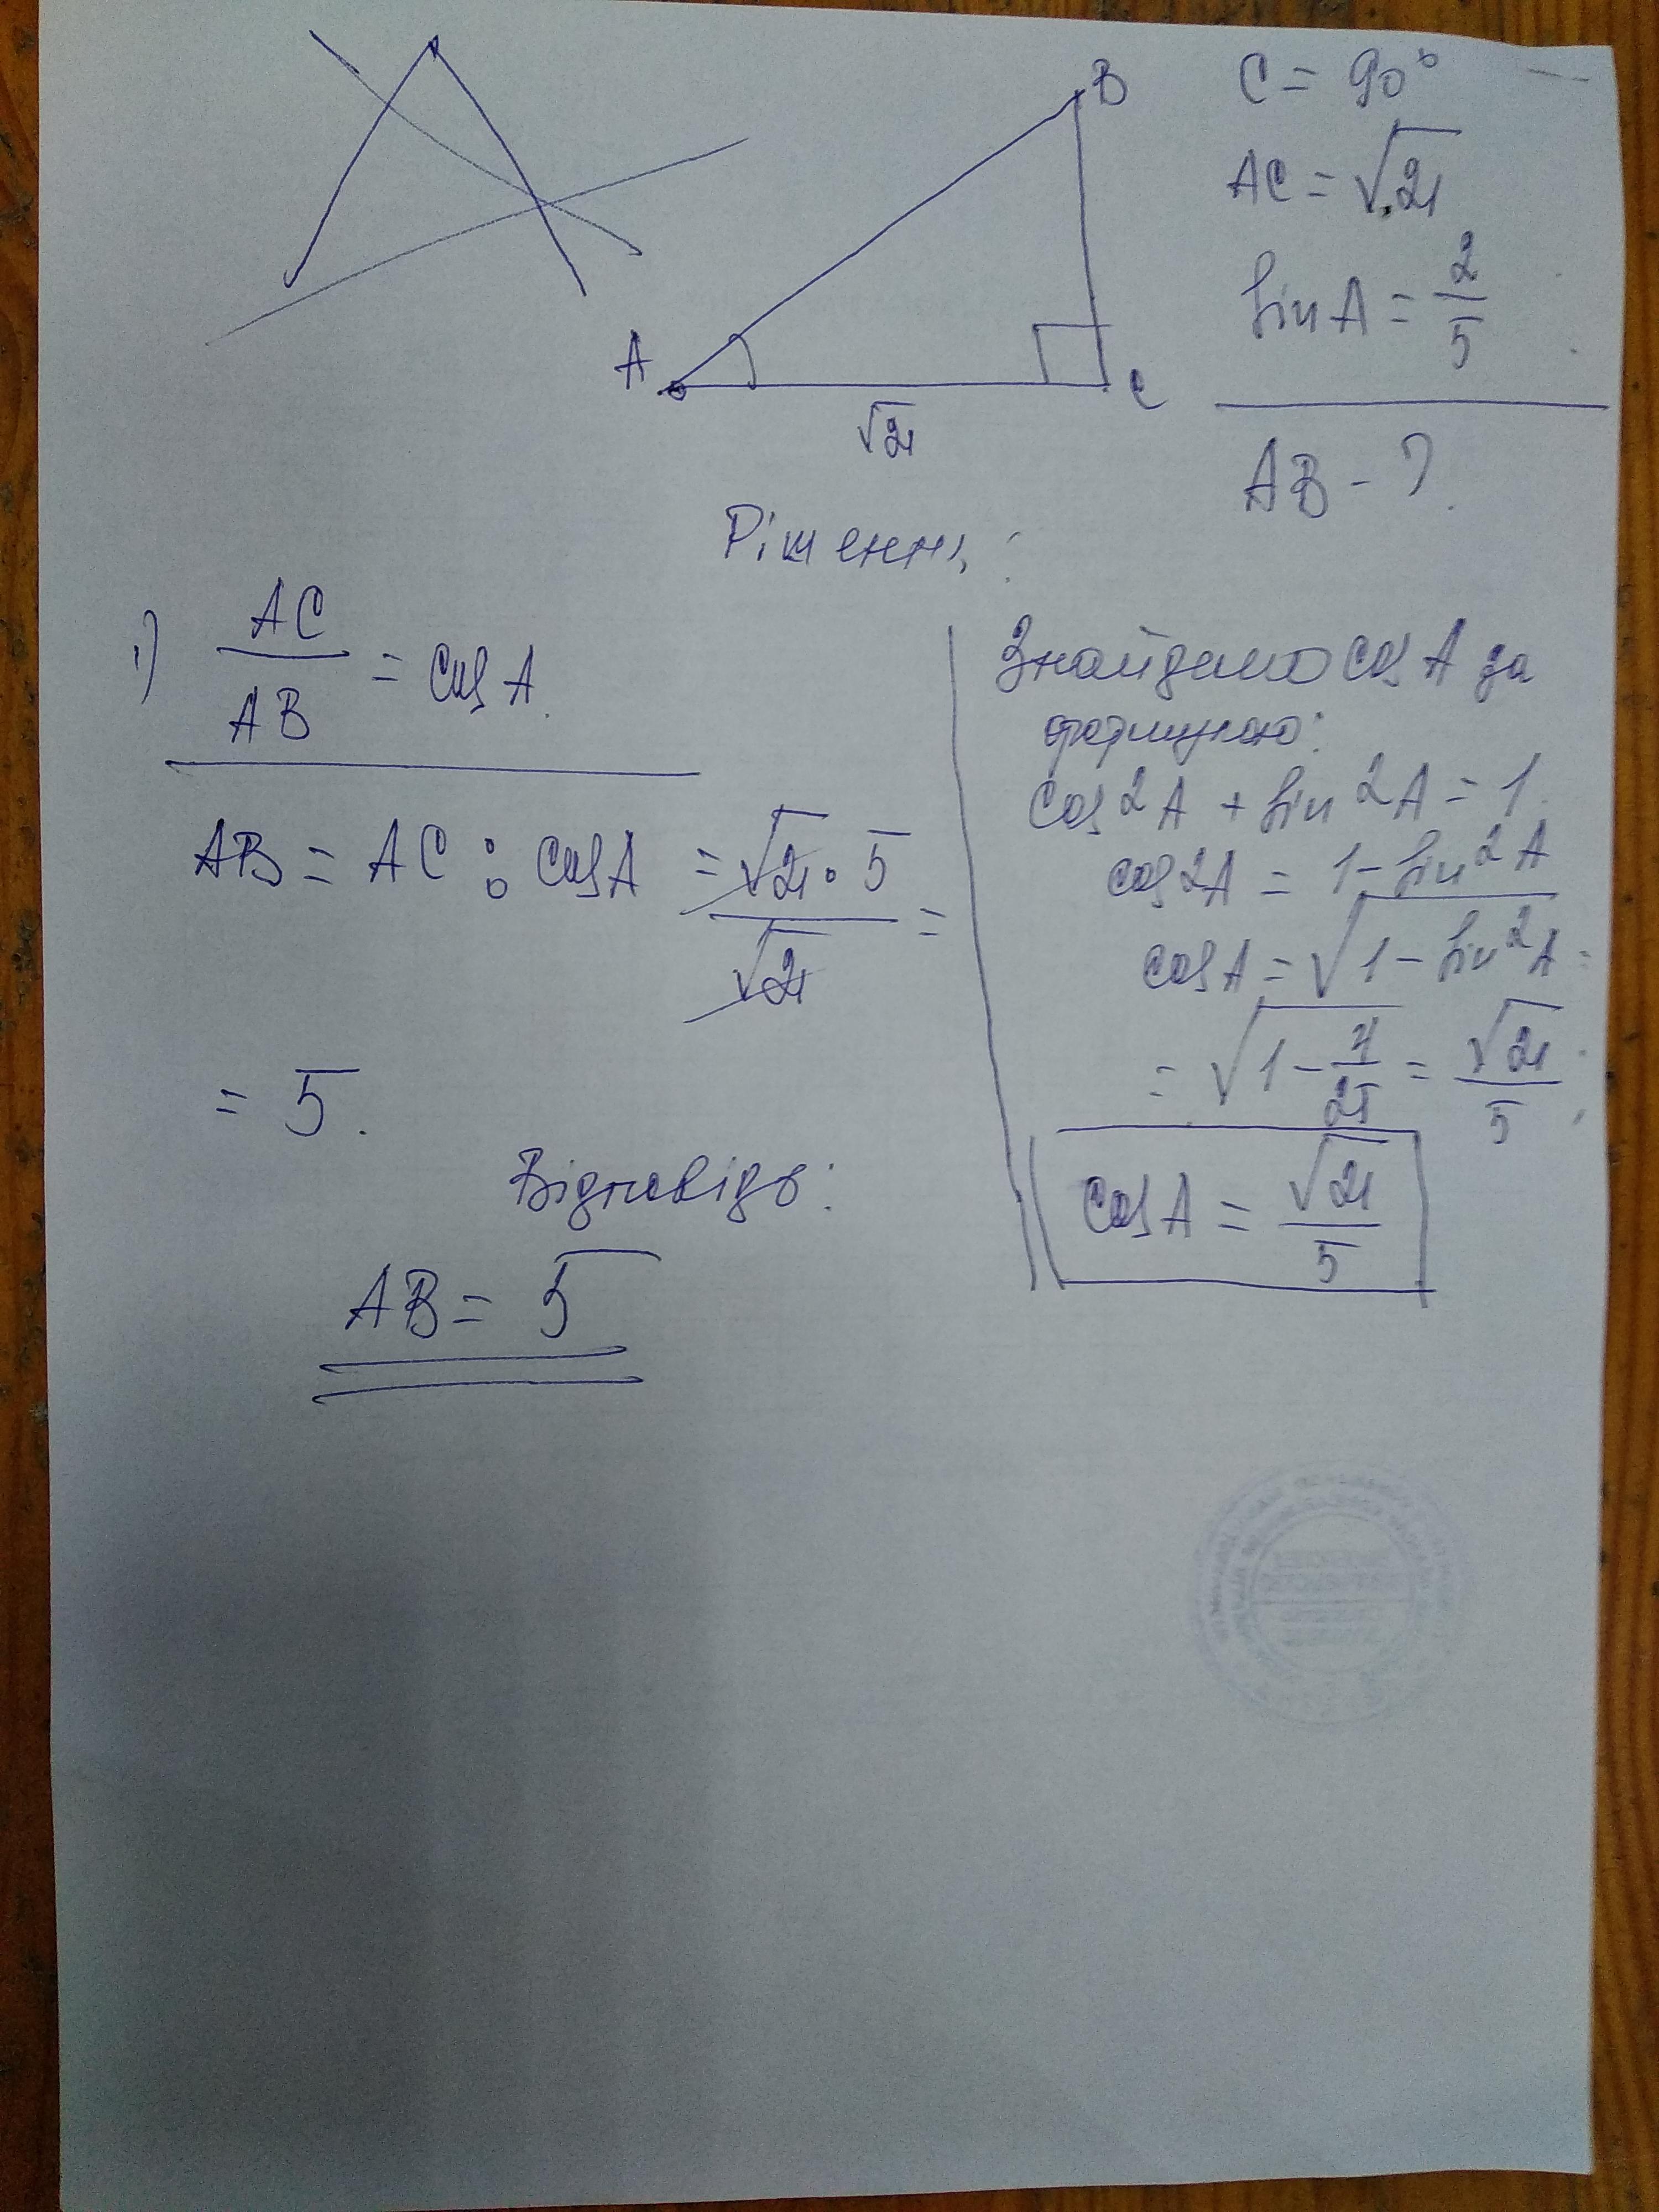 B
C = 90°
AC = √21
sin A = 2/5
A
C
√21
AB - ?
Рішення:
1) AC/AB = cos A.
AB = AC : cos A = √21 · 5/√21 =
= 5.
Відповідь:
AB = 5
Знайдемо cos A за
формулою:
cos²A + sin²A = 1.
cos²A = 1 - sin²A
cos A = √1 - sin²A =
= √1 - 4/25 = √21/5.
cos A = √21/5